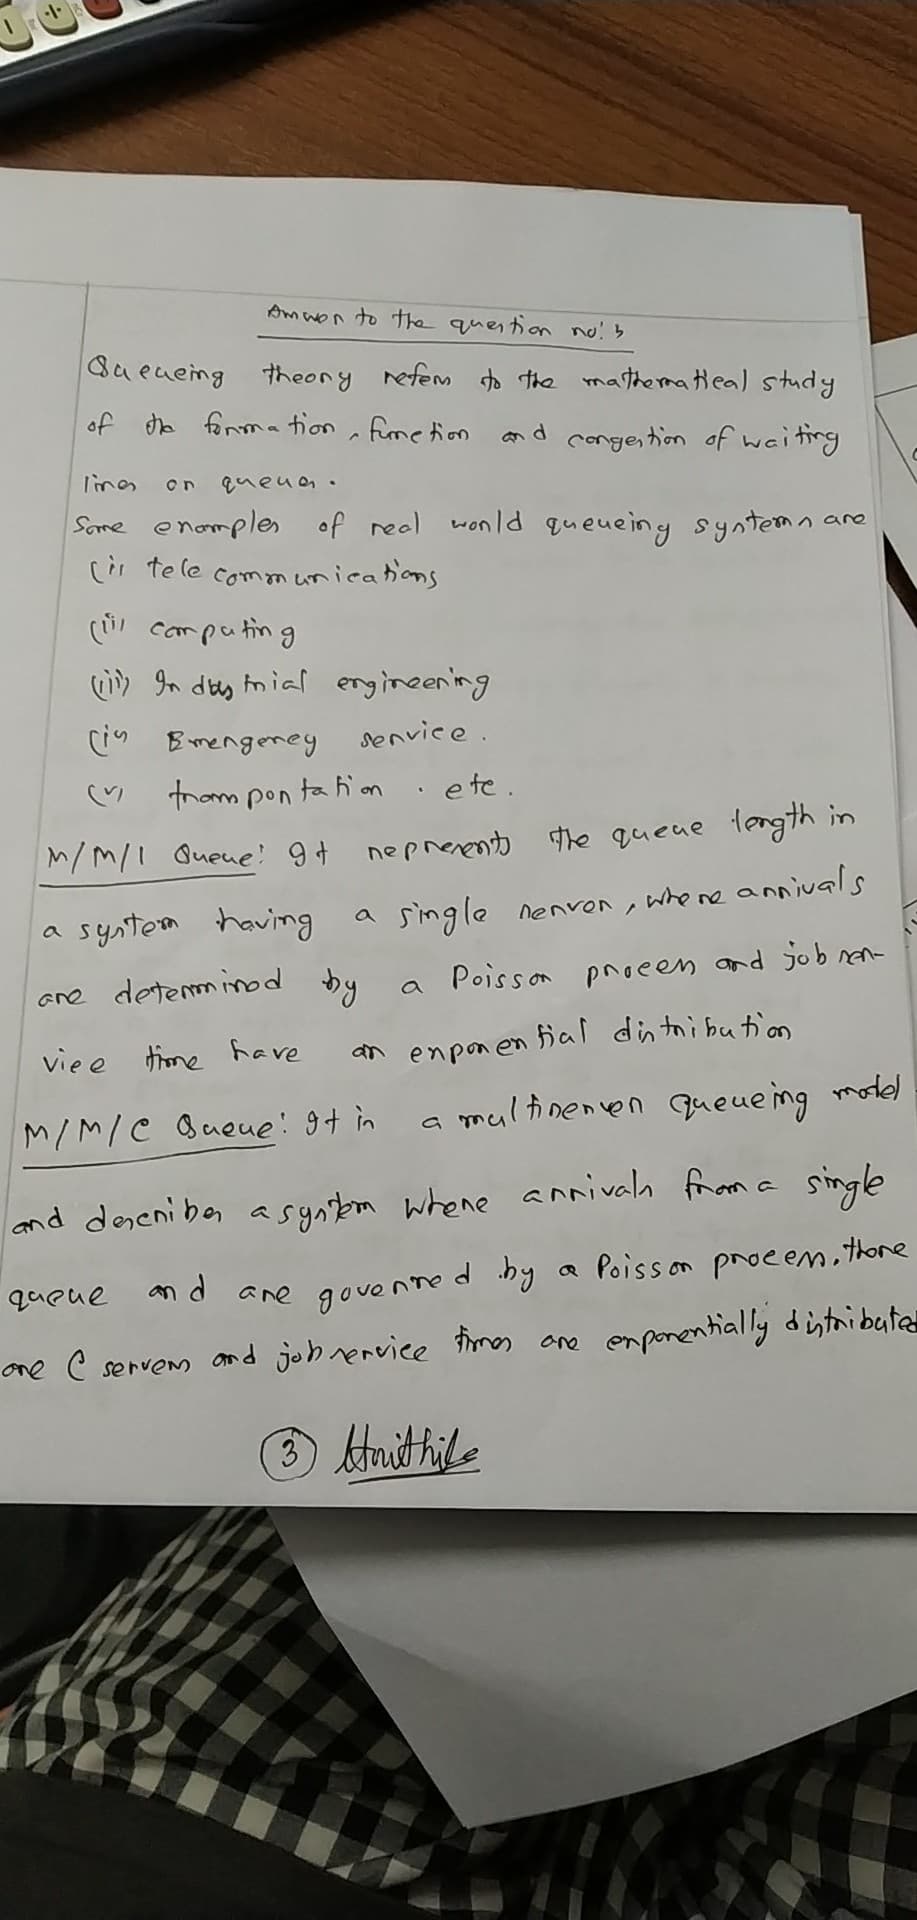 Answer to the question no: 3
Queueing theory refers to the mathematical study
of the formation, function and congestion of waiting
lines or queues.
Some examples of real world queueing systems are
(i) telecommunications
(ii) computing
(iii) Industrial engineering
(iv) Emergency service.
(v) transportation. etc.
M/M/1 Queue: It represents the queue length in
a system having a single server, where arrivals
are determined by a Poisson process and job ser-
vice time have an exponential distribution
M/M/C Queue: It is a multiserver queueing model
and describes a system where arrivals from a single
queue and are govenred by a Poisson process, there
are C servers and job service times are exponentially distributed
3